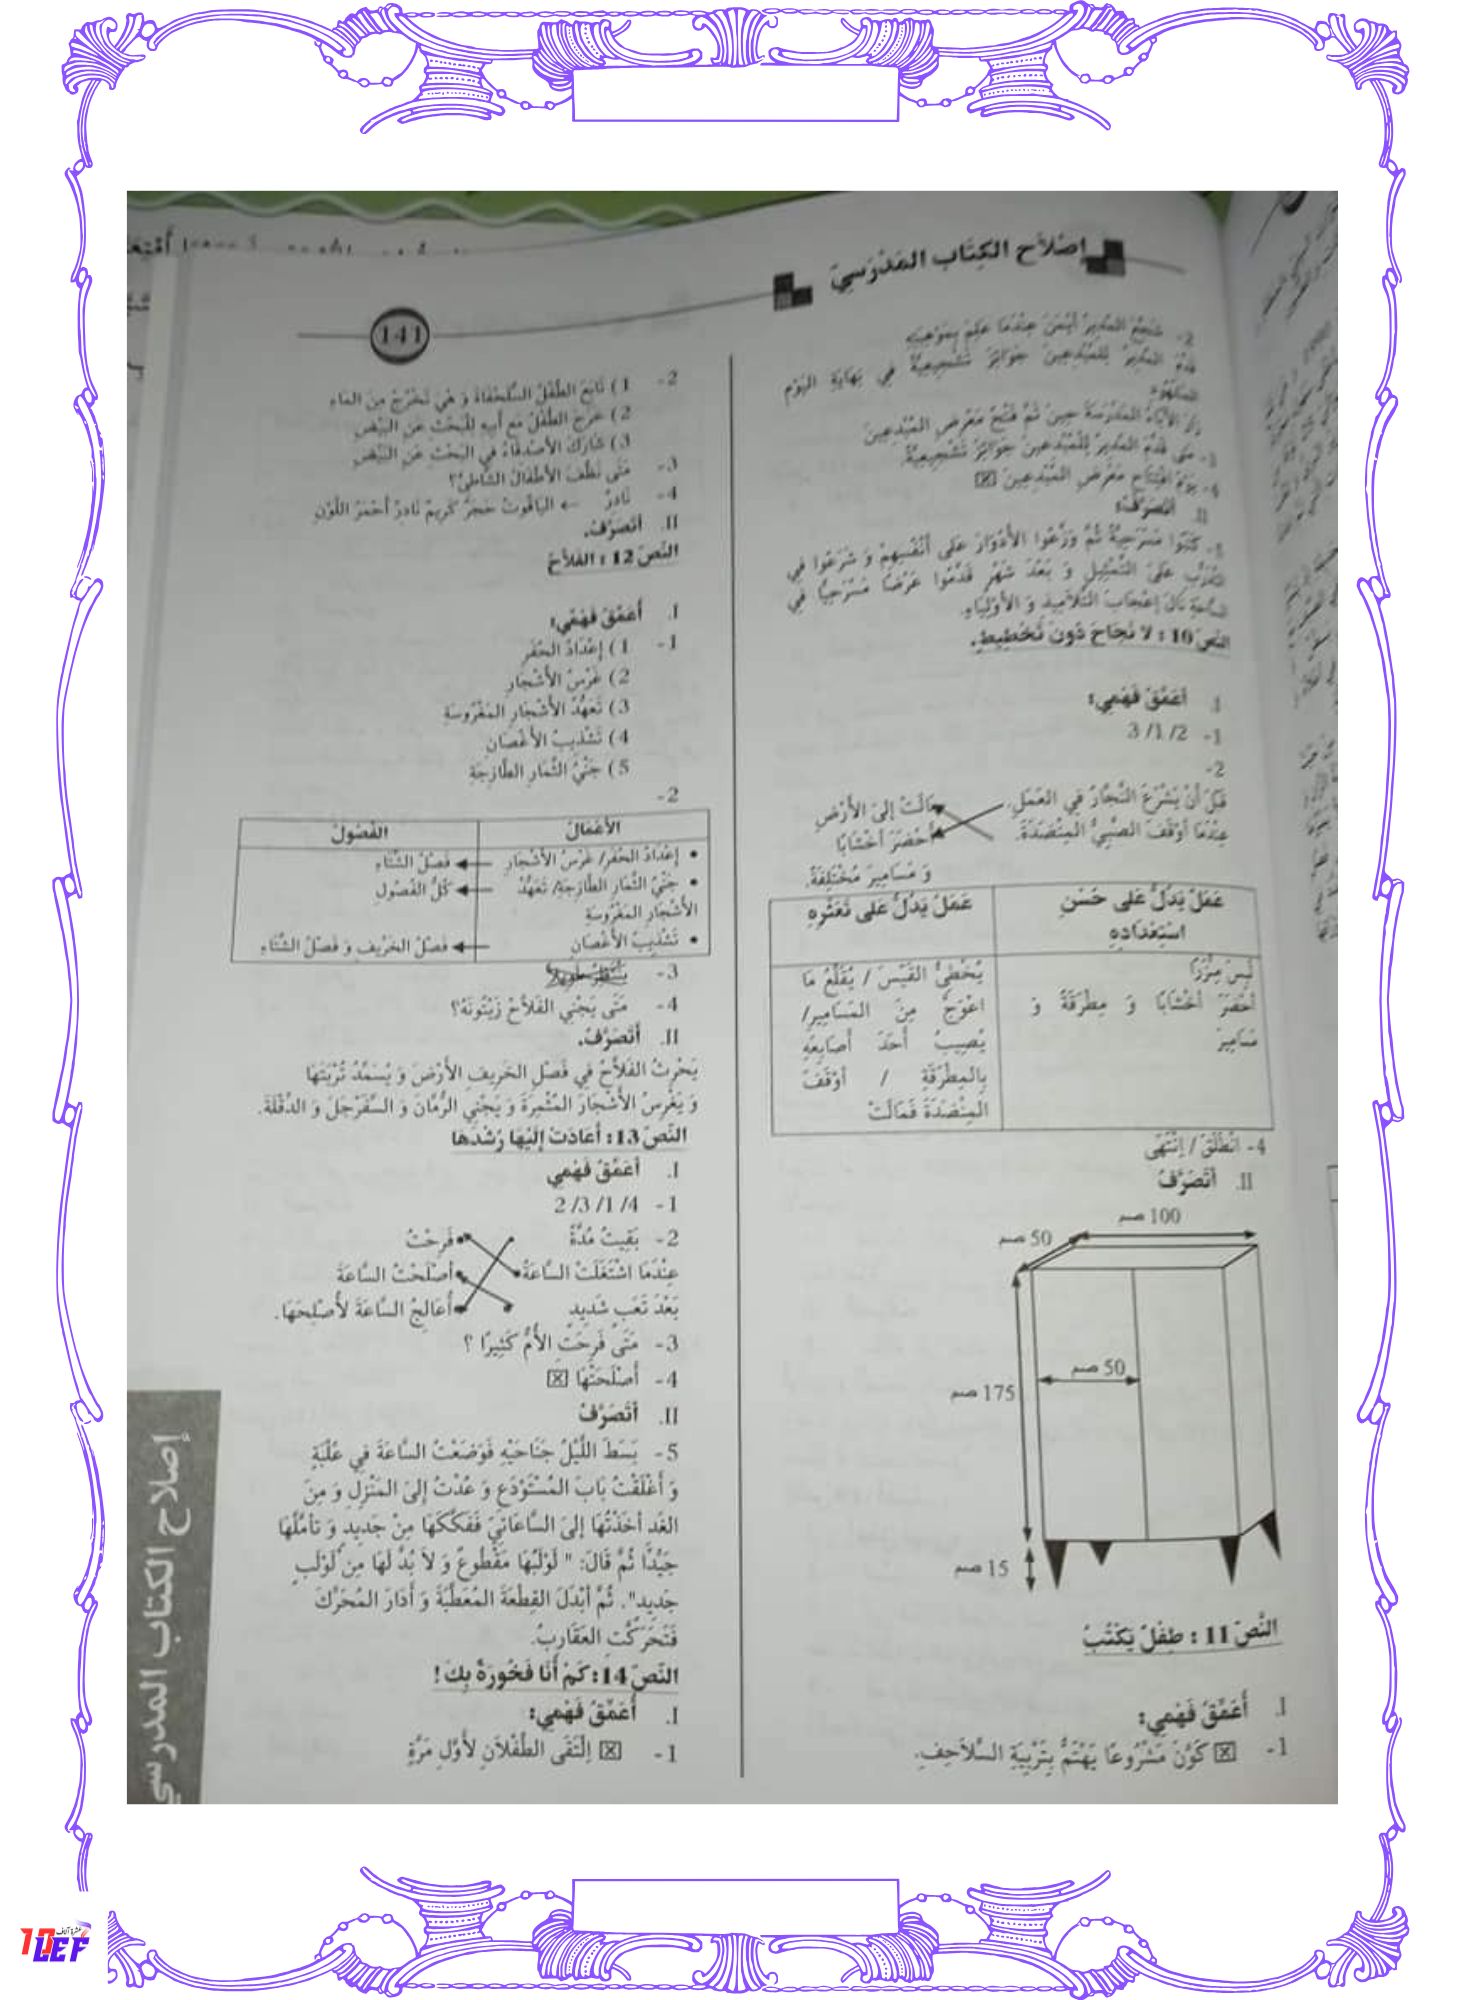 إصْلاَح الكِتَاب المَدْرَسِيّ
141
2- شَجَّعَ المُدِيرُ أَيْمَنَ عِنْدَمَا عَلِمَ بِمَوْهِبَتِهِ
قَدَّمَ المُدِيرُ لِلْمُبْدِعِينَ جَوَائِزَ تَشْجِيعِيَّةً فِي نِهَايَةِ اليَوْمِ
زَارَ الآبَاءُ المَدْرَسَةَ حِينَ تَمَّ فَتْحُ مَعْرَضِ المُبْدِعِينَ
3- مَتَى قَدَّمَ المُدِيرُ لِلْمُبْدِعِينَ جَوَائِزَ تَشْجِيعِيَّةً.
4- يَوْمَ افْتِتَاحِ مَعْرَضِ المُبْدِعِينَ ☒
II. أَتَصَرَّفُ:
5- كَتَبُوا مَسْرَحِيَّةً ثُمَّ وَزَّعُوا الأَدْوَارَ عَلَى أَنْفُسِهِمْ وَ شَرَعُوا فِي
التَّدَرُّبِ عَلَى التَّمْثِيلِ وَ بَعْدَ شَهْرٍ قَدَّمُوا عَرْضًا مَسْرَحِيًّا فِي
السَّاحَةِ نَالَ إِعْجَابَ التَّلاَمِيذِ وَ الأَوْلِيَاءِ.
النّصّ 10 : لاَ نَجَاحَ دُونَ تَخْطِيطٍ.
I. أُعَمِّقُ فَهْمِي:
1- 2/ 1/ 3
2-
قَبْلَ أَنْ يَشْرَعَ النَّجَّارُ فِي العَمَلِ. مَالَتْ إِلَى الأَرْضِ
عِنْدَمَا أَوْقَفَ الصَّبِيُّ المِنْضَدَةَ. أَحْضَرَ أَخْشَابًا
وَ مَسَامِيرَ مُخْتَلِفَةً.
عَمَلٌ يَدُلُّ عَلَى حُسْنِ اسْتِعْدَادِهِ
عَمَلٌ يَدُلُّ عَلَى تَعَثُّرِهِ
لَبِسَ مِئْزَرًا
أَحْضَرَ أَخْشَابًا وَ مِطْرَقَةً وَ
مَسَامِيرَ
يُخْطِئُ القَيْسَ / يُقَلِّعُ مَا
اعْوَجَّ مِنَ المَسَامِيرِ/
يُصِيبُ أَحَدَ أَصَابِعِهِ
بِالمِطْرَقَةِ / أَوْقَفَ
المِنْضَدَةَ فَمَالَتْ
4- انْطَلَقَ / اِنْتَهَى
II. أَتَصَرَّفُ
100 صم
50 صم
50 صم
175 صم
15 صم
النّصّ 11 : طِفْلٌ يَكْتُبُ
I. أُعَمِّقُ فَهْمِي:
1- ☒ كَوَّنَ مَشْرُوعًا يَهْتَمُّ بِتَرْبِيَةِ السَّلاَحِفِ.
2- 1) تَابَعَ الطِّفْلُ السُّلَحْفَاةَ وَ هْيَ تَخْرُجُ مِنَ المَاءِ
2) خَرَجَ الطِّفْلُ مَعَ أَبِيهِ لِلْبَحْثِ عَنِ البَيْضِ
3) شَارَكَ الأَصْدِقَاءُ فِي البَحْثِ عَنِ البَيْضِ
3- مَتَى نَظَّفَ الأَطْفَالُ الشَّاطِئَ؟
4- نَادِرٌ ← اليَاقُوتُ حَجَرٌ كَرِيمٌ نَادِرٌ أَحْمَرُ اللَّوْنِ
II. أَتَصَرَّفُ.
النّصّ 12 : الفَلاَّحُ
I. أُعَمِّقُ فَهْمِي:
1- 1) إِعْدَادُ الحُفَرِ
2) غَرْسُ الأَشْجَارِ
3) تَعَهُّدُ الأَشْجَارِ المَغْرُوسَةِ
4) تَشْذِيبُ الأَغْصَانِ
5) جَنْيُ الثِّمَارِ الطَّازِجَةِ
2-
الأَعْمَالُ الفُصُولُ
• إِعْدَادُ الحُفَرِ/ غَرْسُ الأَشْجَارِ ← فَصْلُ الشِّتَاءِ
• جَنْيُ الثِّمَارِ الطَّازِجَةِ/ تَعَهُّدُ ← كُلُّ الفُصُولِ
الأَشْجَارِ المَغْرُوسَةِ
• تَشْذِيبُ الأَغْصَانِ ← فَصْلُ الخَرِيفِ وَ فَصْلُ الشِّتَاءِ
3-
4- مَتَى يَجْنِي الفَلاَّحُ زَيْتُونَهُ؟
II. أَتَصَرَّفُ.
يَحْرِثُ الفَلاَّحُ فِي فَصْلِ الخَرِيفِ الأَرْضَ وَ يُسَمِّدُ تُرْبَتَهَا
وَ يَغْرِسُ الأَشْجَارَ المُثْمِرَةَ وَ يَجْنِي الرُّمَّانَ وَ السَّفَرْجَلَ وَ الدِّقْلَةَ.
النّصّ 13: أَعَادَتْ إِلَيْهَا رُشْدَهَا
I. أُعَمِّقُ فَهْمِي
1- 4/ 1/ 3/ 2
2- بَقِيتُ مُدَّةً فَرِحْتُ
عِنْدَمَا اشْتَغَلَتْ السَّاعَةُ أَصْلَحْتُ السَّاعَةَ
بَعْدَ تَعَبٍ شَدِيدٍ أُعَالِجُ السَّاعَةَ لِأُصْلِحَهَا.
3- مَتَى فَرِحَتْ الأُمُّ كَثِيرًا ؟
4- أَصْلَحَتْهَا ☒
II. أَتَصَرَّفُ
5- بَسَطَ اللَّيْلُ جَنَاحَيْهِ فَوَضَعْتُ السَّاعَةَ فِي عُلْبَةٍ
وَ أَغْلَقْتُ بَابَ المُسْتَوْدَعِ وَ عُدْتُ إِلَى المَنْزِلِ وَ مِنَ
الغَدِ أَخَذْتُهَا إِلَى السَّاعَاتِيّ فَفَكَّكَهَا مِنْ جَدِيدٍ وَ تَأَمَّلَهَا
جَيِّدًا ثُمَّ قَالَ: " لَوْلَبُهَا مَقْطُوعٌ وَ لاَ بُدَّ لَهَا مِنْ لَوْلَبٍ
جَدِيدٍ". ثُمَّ أَبْدَلَ القِطْعَةَ المُعَطَّبَةَ وَ أَدَارَ المُحَرِّكَ
فَتَحَرَّكَتْ العَقَارِبُ.
النّصّ 14: كَمْ أَنَا فَخُورَةٌ بِكَ !
I. أُعَمِّقُ فَهْمِي:
1- ☒ اِلْتَقَى الطِّفْلاَنِ لِأَوَّلِ مَرَّةٍ
إصلاح الكتاب المدرسي
عشرة آلاف
10LEF